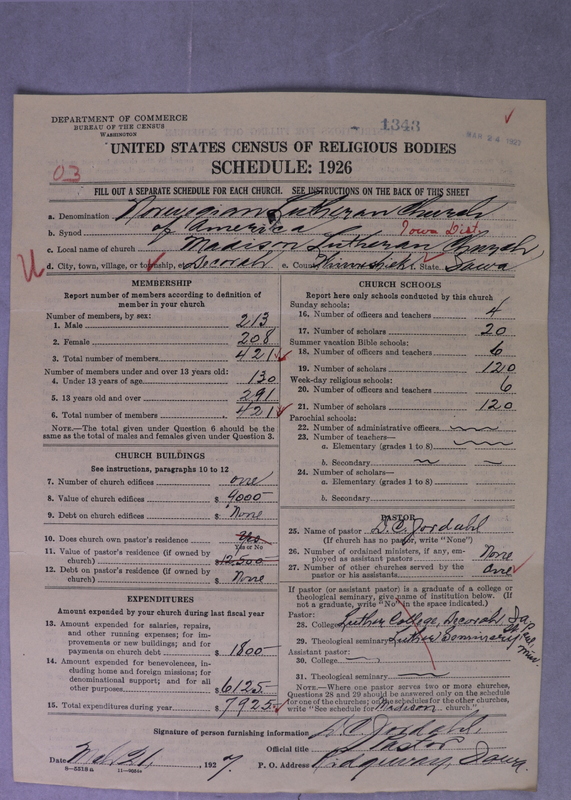 DEPARTMENT OF COMMERCE
BUREAU OF THE CENSUS
WASHINGTON
1343
MAR 24 1927
UNITED STATES CENSUS OF RELIGIOUS BODIES
SCHEDULE: 1926
03
FILL OUT A SEPARATE SCHEDULE FOR EACH CHURCH. SEE INSTRUCTIONS ON THE BACK OF THIS SHEET
a. Denomination Norwegian Lutheran Church
b. Synod of America Iowa Dist.
c. Local name of church Madison Lutheran Church
d. City, town, village, or township, etc. Decorah e. County Winneshiek State Iowa
MEMBERSHIP
Report number of members according to definition of member in your church
Number of members, by sex:
1. Male 213
2. Female 208
3. Total number of members 421
Number of members under and over 13 years old:
4. Under 13 years of age 130
5. 13 years old and over 291
6. Total number of members 421
NOTE.—The total given under Question 6 should be the same as the total of males and females given under Question 3.
CHURCH BUILDINGS
See instructions, paragraphs 10 to 12
7. Number of church edifices one
8. Value of church edifices $ 9000
9. Debt on church edifices $ None
10. Does church own pastor's residence?
Yes or No
11. Value of pastor's residence (if owned by church) $ 12,500
12. Debt on pastor's residence (if owned by church) $ None
EXPENDITURES
Amount expended by your church during last fiscal year
13. Amount expended for salaries, repairs, and other running expenses; for improvements or new buildings; and for payments on church debt $ 1800
14. Amount expended for benevolences, including home and foreign missions; for denominational support; and for all other purposes $ 6125
15. Total expenditures during year $ 7925
CHURCH SCHOOLS
Report here only schools conducted by this church
Sunday schools:
16. Number of officers and teachers 4
17. Number of scholars 20
Summer vacation Bible schools:
18. Number of officers and teachers 6
19. Number of scholars 120
Week-day religious schools:
20. Number of officers and teachers 6
21. Number of scholars 120
Parochial schools:
22. Number of administrative officers
23. Number of teachers—
a. Elementary (grades 1 to 8)
b. Secondary
24. Number of scholars—
a. Elementary (grades 1 to 8)
b. Secondary
PASTOR
25. Name of pastor D. C. Jordahl
(If church has no pastor, write "None")
26. Number of ordained ministers, if any, employed as assistant pastors None
27. Number of other churches served by the pastor or his assistants One
If pastor (or assistant pastor) is a graduate of a college or theological seminary, give name of institution below. (If not a graduate, write "No" in the space indicated.)
Pastor:
28. College Luther College, Decorah, Ia
29. Theological seminary Luther Seminary
Assistant pastor:
30. College
31. Theological seminary
NOTE.—Where one pastor serves two or more churches, Questions 28 and 29 should be answered only on the schedule for one of the churches; on the schedules for the other churches, write "See schedule for Madison church."
Signature of person furnishing information D. C. Jordahl,
Official title Pastor
Date Mch 21, 1927. P. O. Address Ridgeway, Iowa.
8—5518a 11—9065